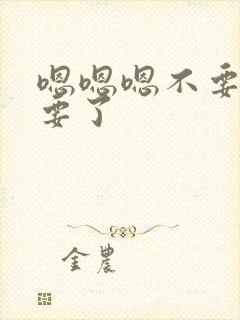 嗯嗯嗯不要
要了
金農